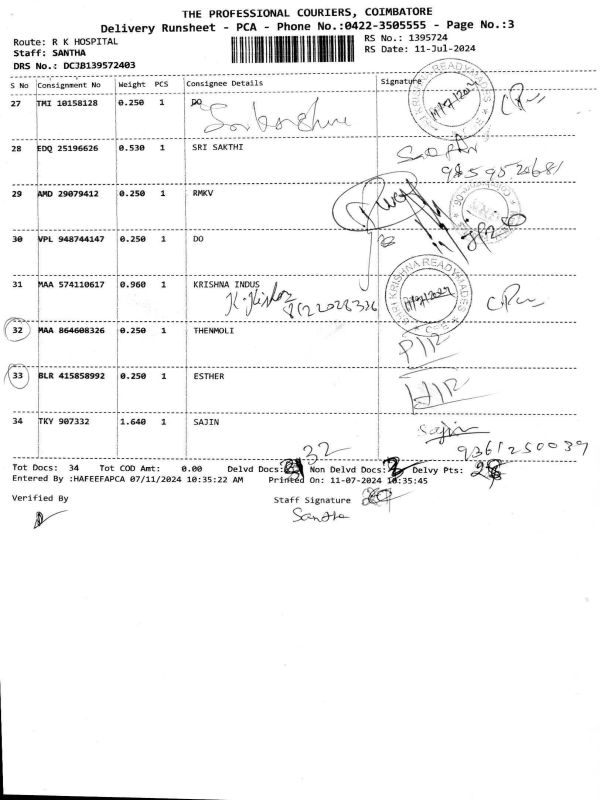 THE PROFESSIONAL COURIERS, COIMBATORE
Delivery Runsheet - PCA - Phone No.:0422-3505555 - Page No.:3
Route: R K HOSPITAL
RS No.: 1395724
Staff: SANTHA
RS Date: 11-Jul-2024
DRS No.: DCJB139572403
S No Consignment No Weight PCS Consignee Details Signature
27 TMI 10158128 0.250 1 DO
28 EDQ 25196626 0.530 1 SRI SAKTHI
29 AMD 29079412 0.250 1 RMKV
30 VPL 948744147 0.250 1 DO
31 MAA 574110617 0.960 1 KRISHNA INDUS
K. Kishor
SHRI KRISHNA READYMADES
11/7/2024
32 MAA 864608326 0.250 1 THENMOLI
33 BLR 415858992 0.250 1 ESTHER
34 TKY 907332 1.640 1 SAJIN Sajin
9361250039
32
Tot Docs: 34 Tot COD Amt: 0.00 Delvd Docs: Non Delvd Docs: 2 Delvy Pts: 28
Entered By :HAFEEFAPCA 07/11/2024 10:35:22 AM Printed On: 11-07-2024 10:35:45
Verified By Staff Signature
Santha